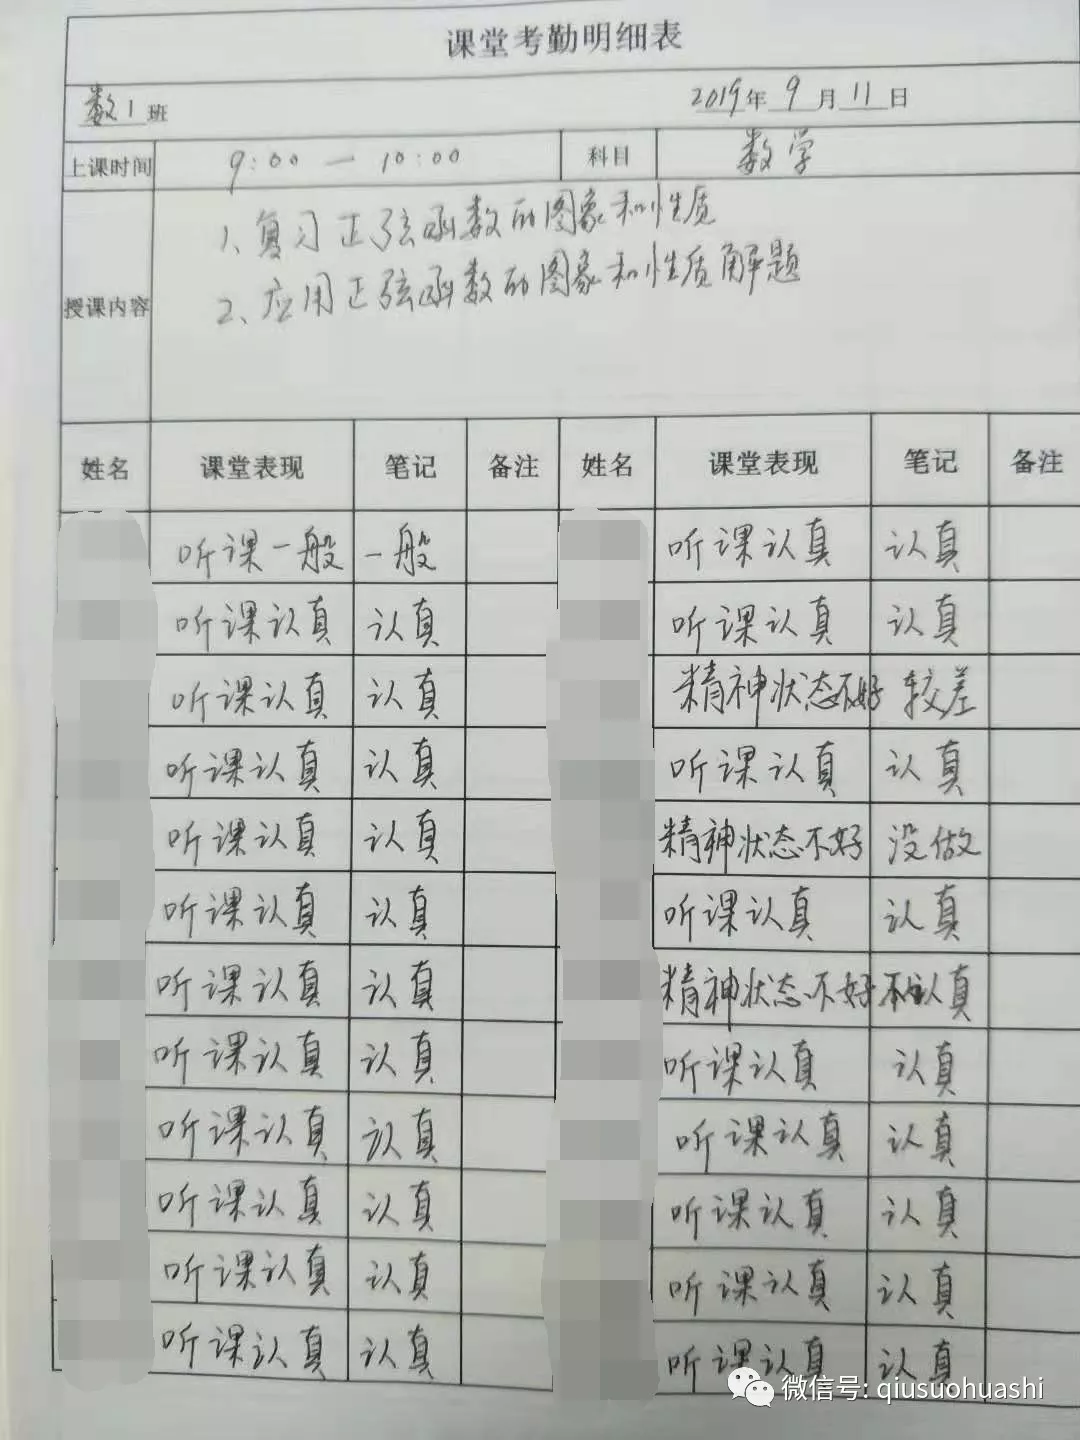 课堂考勤明细表
数1班 2019年9月11日
上课时间 9:00 — 10:00 科目 数学
授课内容
1、复习正弦函数的图象和性质
2、应用正弦函数的图象和性质解题
姓名 课堂表现 笔记 备注 姓名 课堂表现 笔记 备注
听课一般 一般 听课认真 认真
听课认真 认真 听课认真 认真
听课认真 认真 精神状态不好 较差
听课认真 认真 听课认真 认真
听课认真 认真 精神状态不好 没做
听课认真 认真 听课认真 认真
听课认真 认真 精神状态不好 不认真
听课认真 认真 听课认真 认真
听课认真 认真 听课认真 认真
听课认真 认真 听课认真 认真
听课认真 认真 听课认真 认真
听课认真 认真 听课认真 认真
微信号: qiusuohuashi